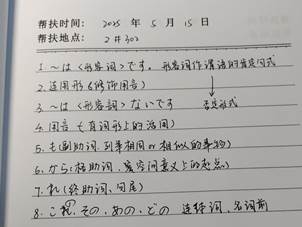 帮扶时间: 2025 年 5 月 15 日
帮扶地点: 2#302
1. ～は<形容词>です。形容词作谓语的肯定句式
2. 连用形 (修饰用言)
3. ～は<形容词>ないです 否定形式
4. 用言 (有词形上的活用)
5. も (副助词. 列举相同or相似的事物)
6. から (格助词. 空间意义上的起点)
7. れ (终助词, 句尾)
8. この, その, あの, どの 连体词, 名词前